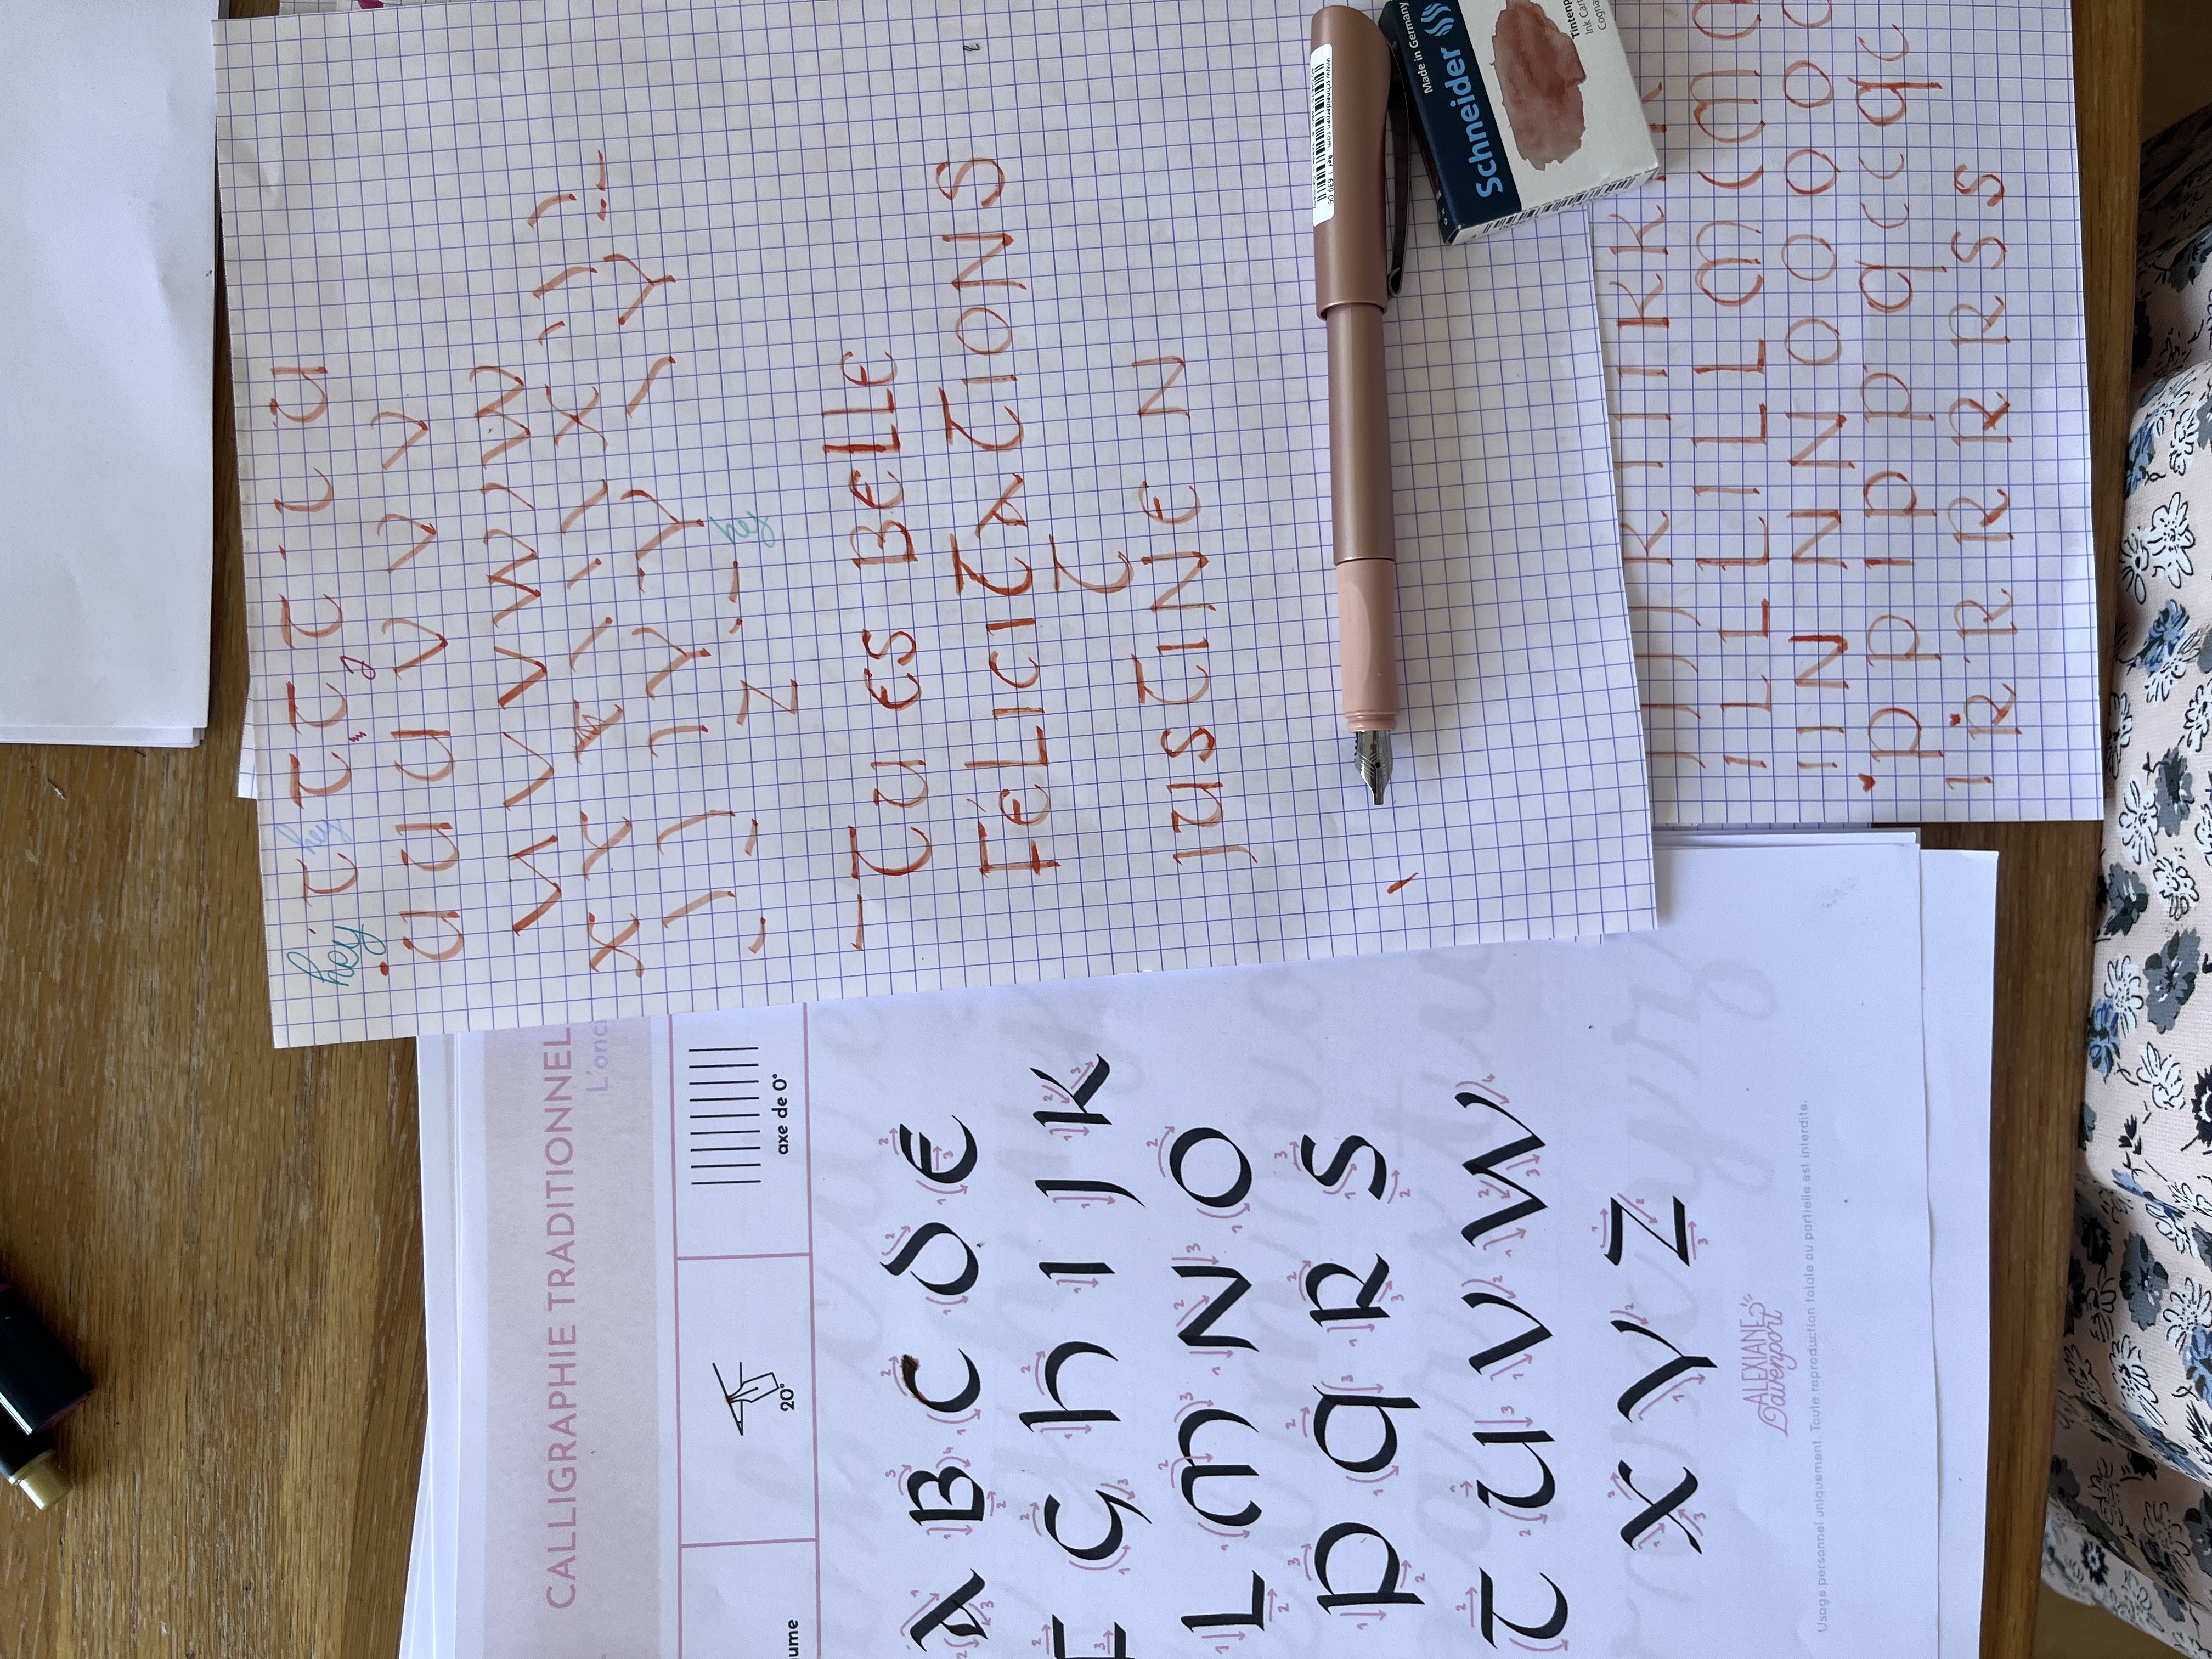 hey
T hey T T T T ' T ι U
U U U V V V
V V V V W W W
X X X \ \ \ X ) ) )
) ) ) Y Y Y \ Y
Z hey
T U ES BELLE
FÉLICITATIONS
T
JUSTINE N
J J K I I K K
I L L I L L M ( M
I I N N N O O O
P P I P P q c c q c
I R R R R R S S
www.schneiderpen.com
Made in Germany
Schneider
CALLIGRAPHIE TRADITIONNEL
L'onc
ume
20°
axe de 0°
A B C D E
F G H I J K
L M N O
P Q R S
T U V W
X Y Z
ALEXIANE
Davenport
Usage personnel uniquement. Toute reproduction totale ou partielle est interdite.